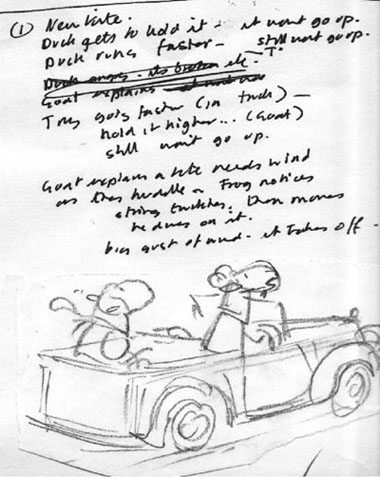 (1) New kite.
Duck gets to hold it - it wont go up.
Duck runs faster - still wont go up.
Duck angry - its broken etc - T.
Goat explains
They go faster (in truck) -
hold it higher... (Goat)
still won't go up.
Goat explains a kite needs wind
as they huddle - Frog notices
string twitches. Then moves
he dives on it.
big gust of wind - it takes off -